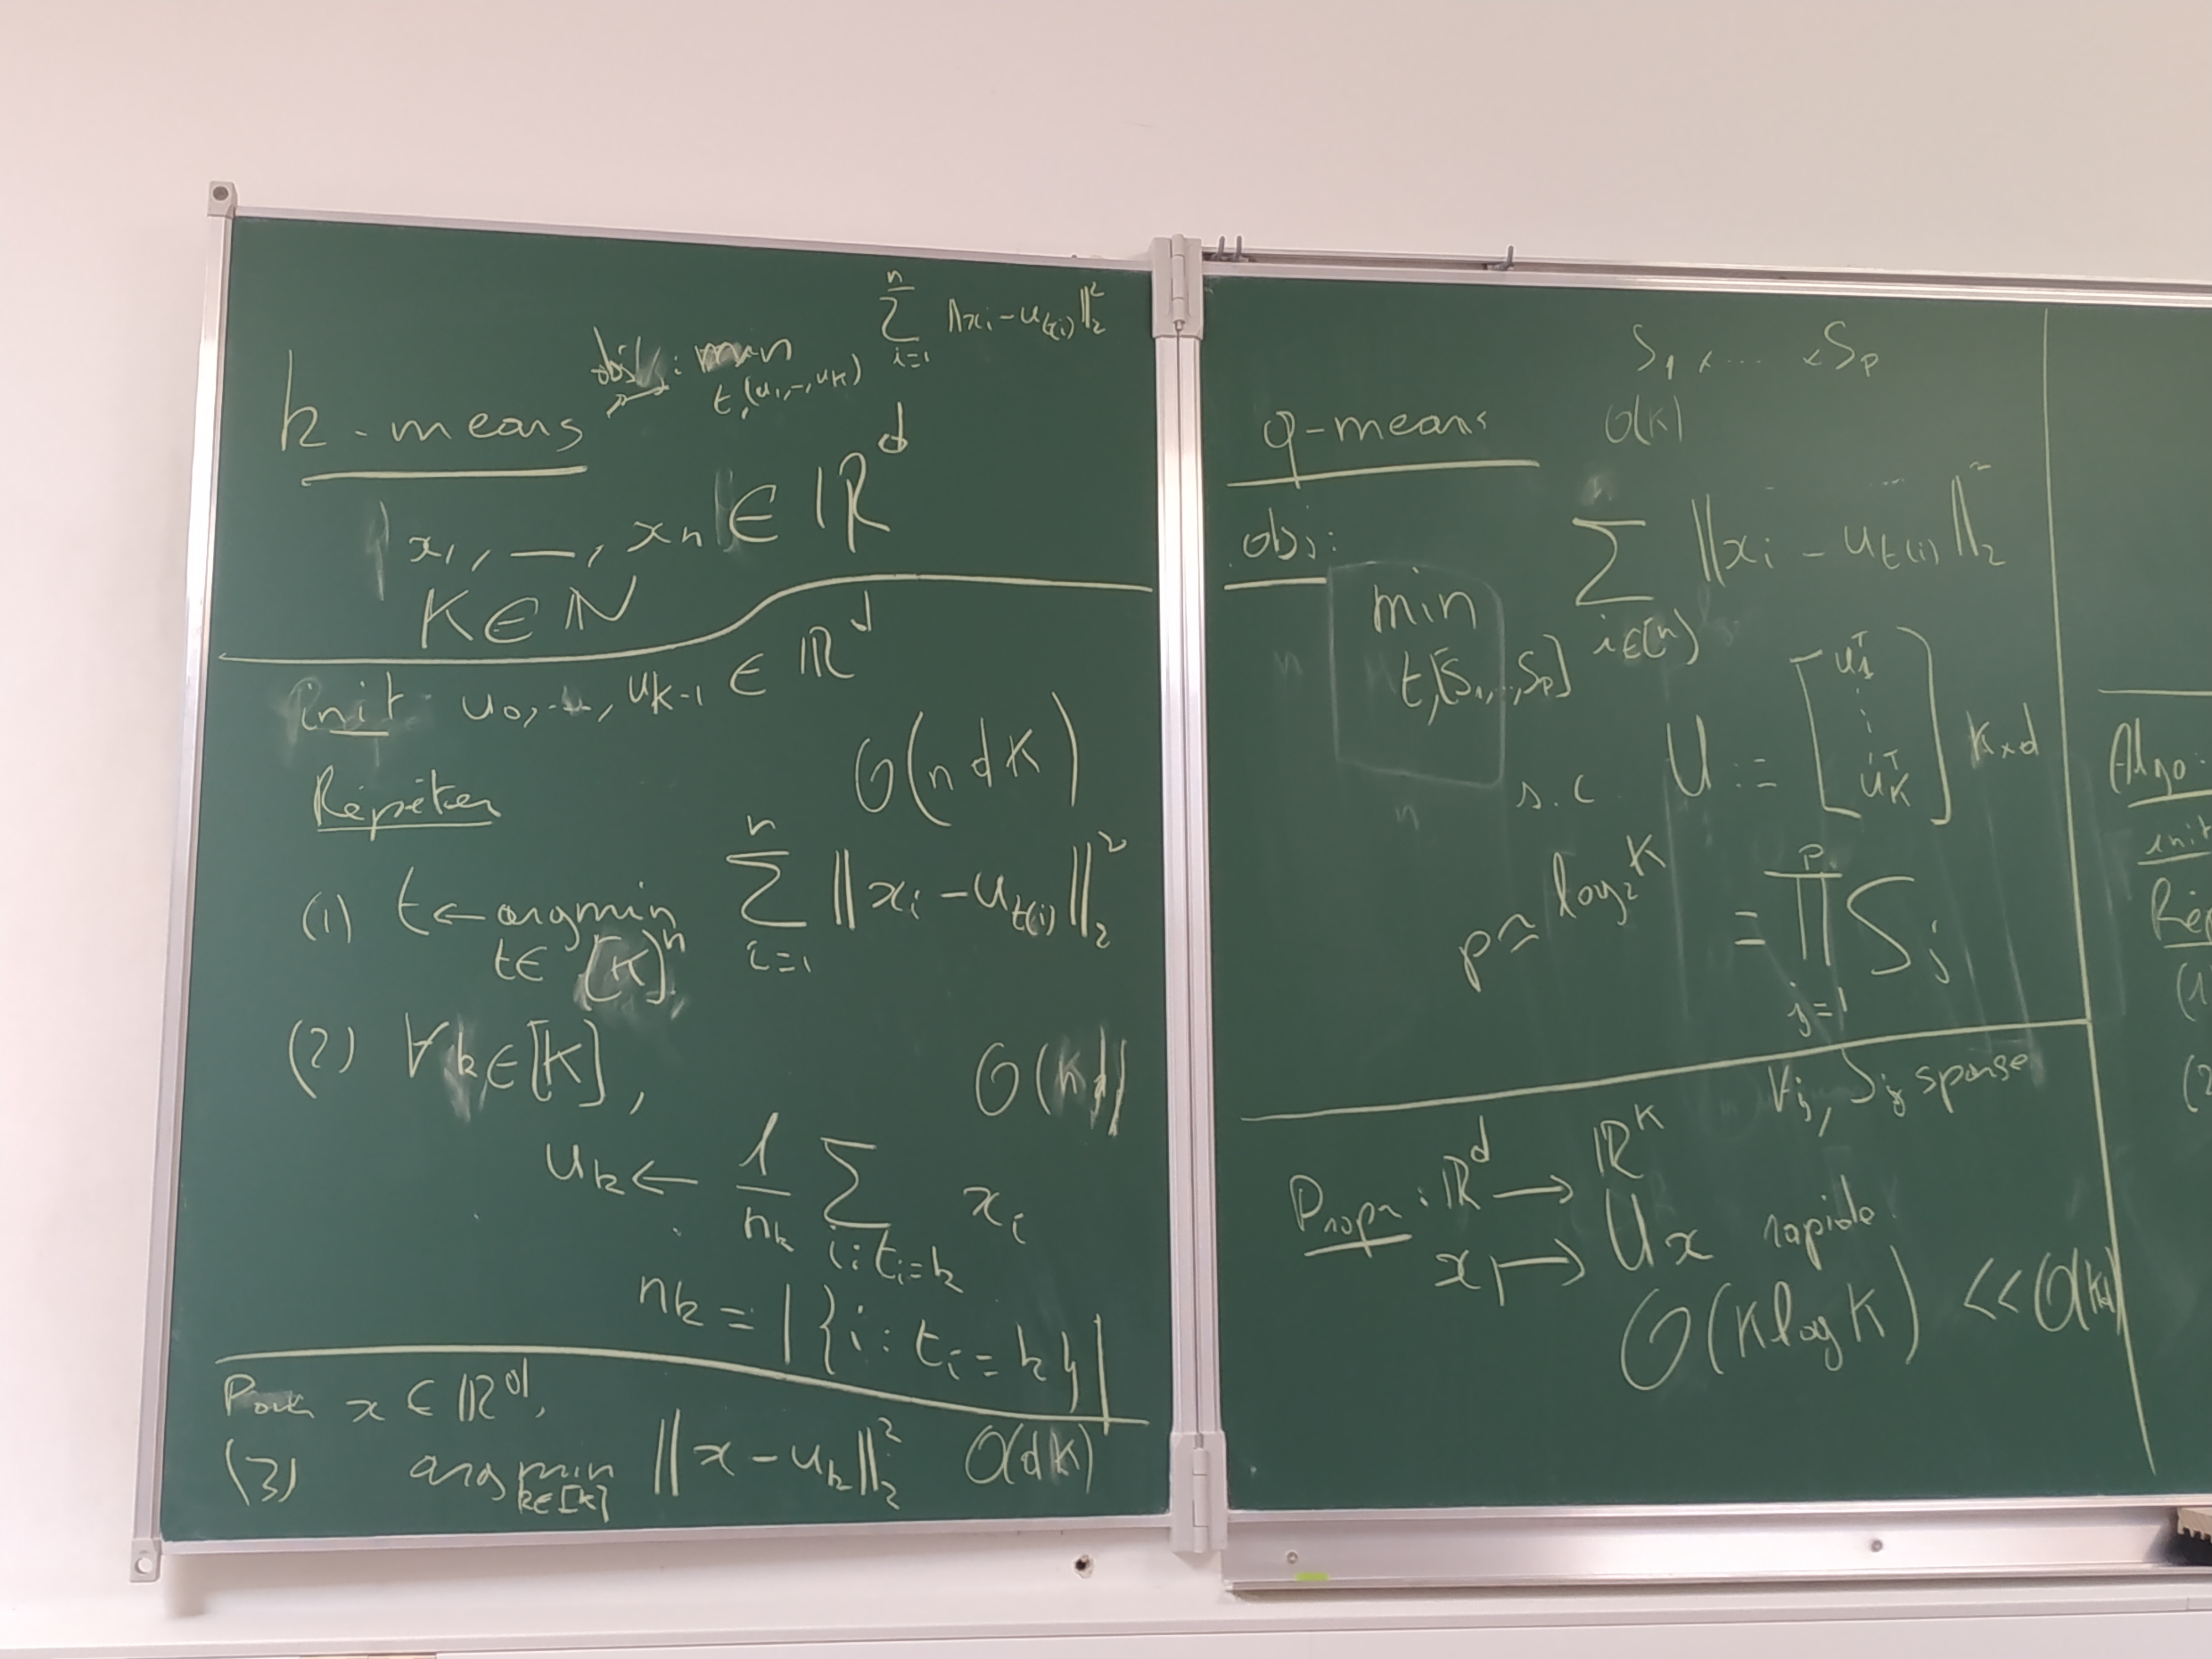 k-means obj: min_{t,(u_1,-,u_K)} \sum_{i=1}^{n} ||x_i - u_{t(i)}||_2^2
x_1, —, x_n ∈ ℝ^d
K ∈ ℕ
init u_0, ..., u_{K-1} ∈ ℝ^d
Répéter O(ndK)
(1) t ← argmin_{t∈[K]^n} \sum_{i=1}^{n} ||x_i - u_{t(i)}||_2^2
(2) ∀k∈[K], O(nd)
u_k ← \frac{1}{n_k} \sum_{i:t_i=k} x_i
n_k = |{i: t_i = k}|
Pour x ∈ ℝ^d,
(3) argmin_{k∈[K]} ||x - u_k||_2^2 O(dK)
S_1 × .... × S_p
q-means O(K)
obj: min_{t,[S_1,..,S_p]} \sum_{i∈[n]} ||x_i - u_{t(i)}||_2^2
s.c. U := [u_1^T ⋮ u_K^T] K×d
p ≃ log_2 K = \prod_{j=1}^{p} S_j
∀j, S_j sparse
Propr: ℝ^d → ℝ^K
x ↦ Ux rapide
O(K log K) << O(Kd)
Algo:
init
Rép
(1
(2